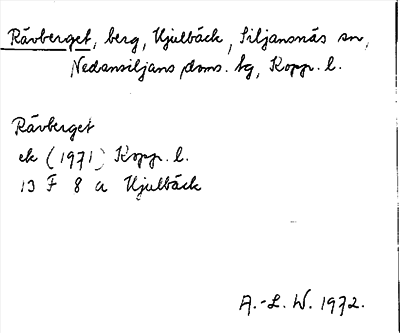 Rävberget, berg, Hjulbäck, Siljansnäs sn,
Nedansiljans doms. tg, Kopp. l.
Rävberget
ek (1971) Kopp. l.
13 F 8 a Hjulbäck
A.-L. W. 1972.